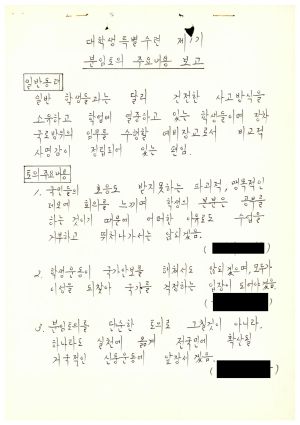 대학생 특별수련 제1기
분임토의 주요내용 보고
일반동태
일반 학생들과는 달리 건전한 사고방식을
소유하고 학업에 열중하고 있는 학생들이며 장차
국토방위의 임무를 수행할 예비장교로서 비교적
사명감이 정립되어 있는 편임.
토의주요내용
1. 국민들의 호응도 받지못하는 파괴적, 맹목적인
데모에 회의를 느끼며 학생의 본분은 공부를
하는 것이기 때문에 어떠한 이유로도 수업을
거부하고 뛰쳐나가서는 안되겠음.
2. 학생운동이 국가안보를 해쳐서도 안되겠으며, 모두가
이성을 되찾아 국가를 걱정하는 입장이 되어야겠음
3. 분임토의를 단순한 토의로 그칠것이 아니라,
하나라도 실천에 옮겨 전국민에 확산될
거국적인 신풍운동에 앞장서겠음.